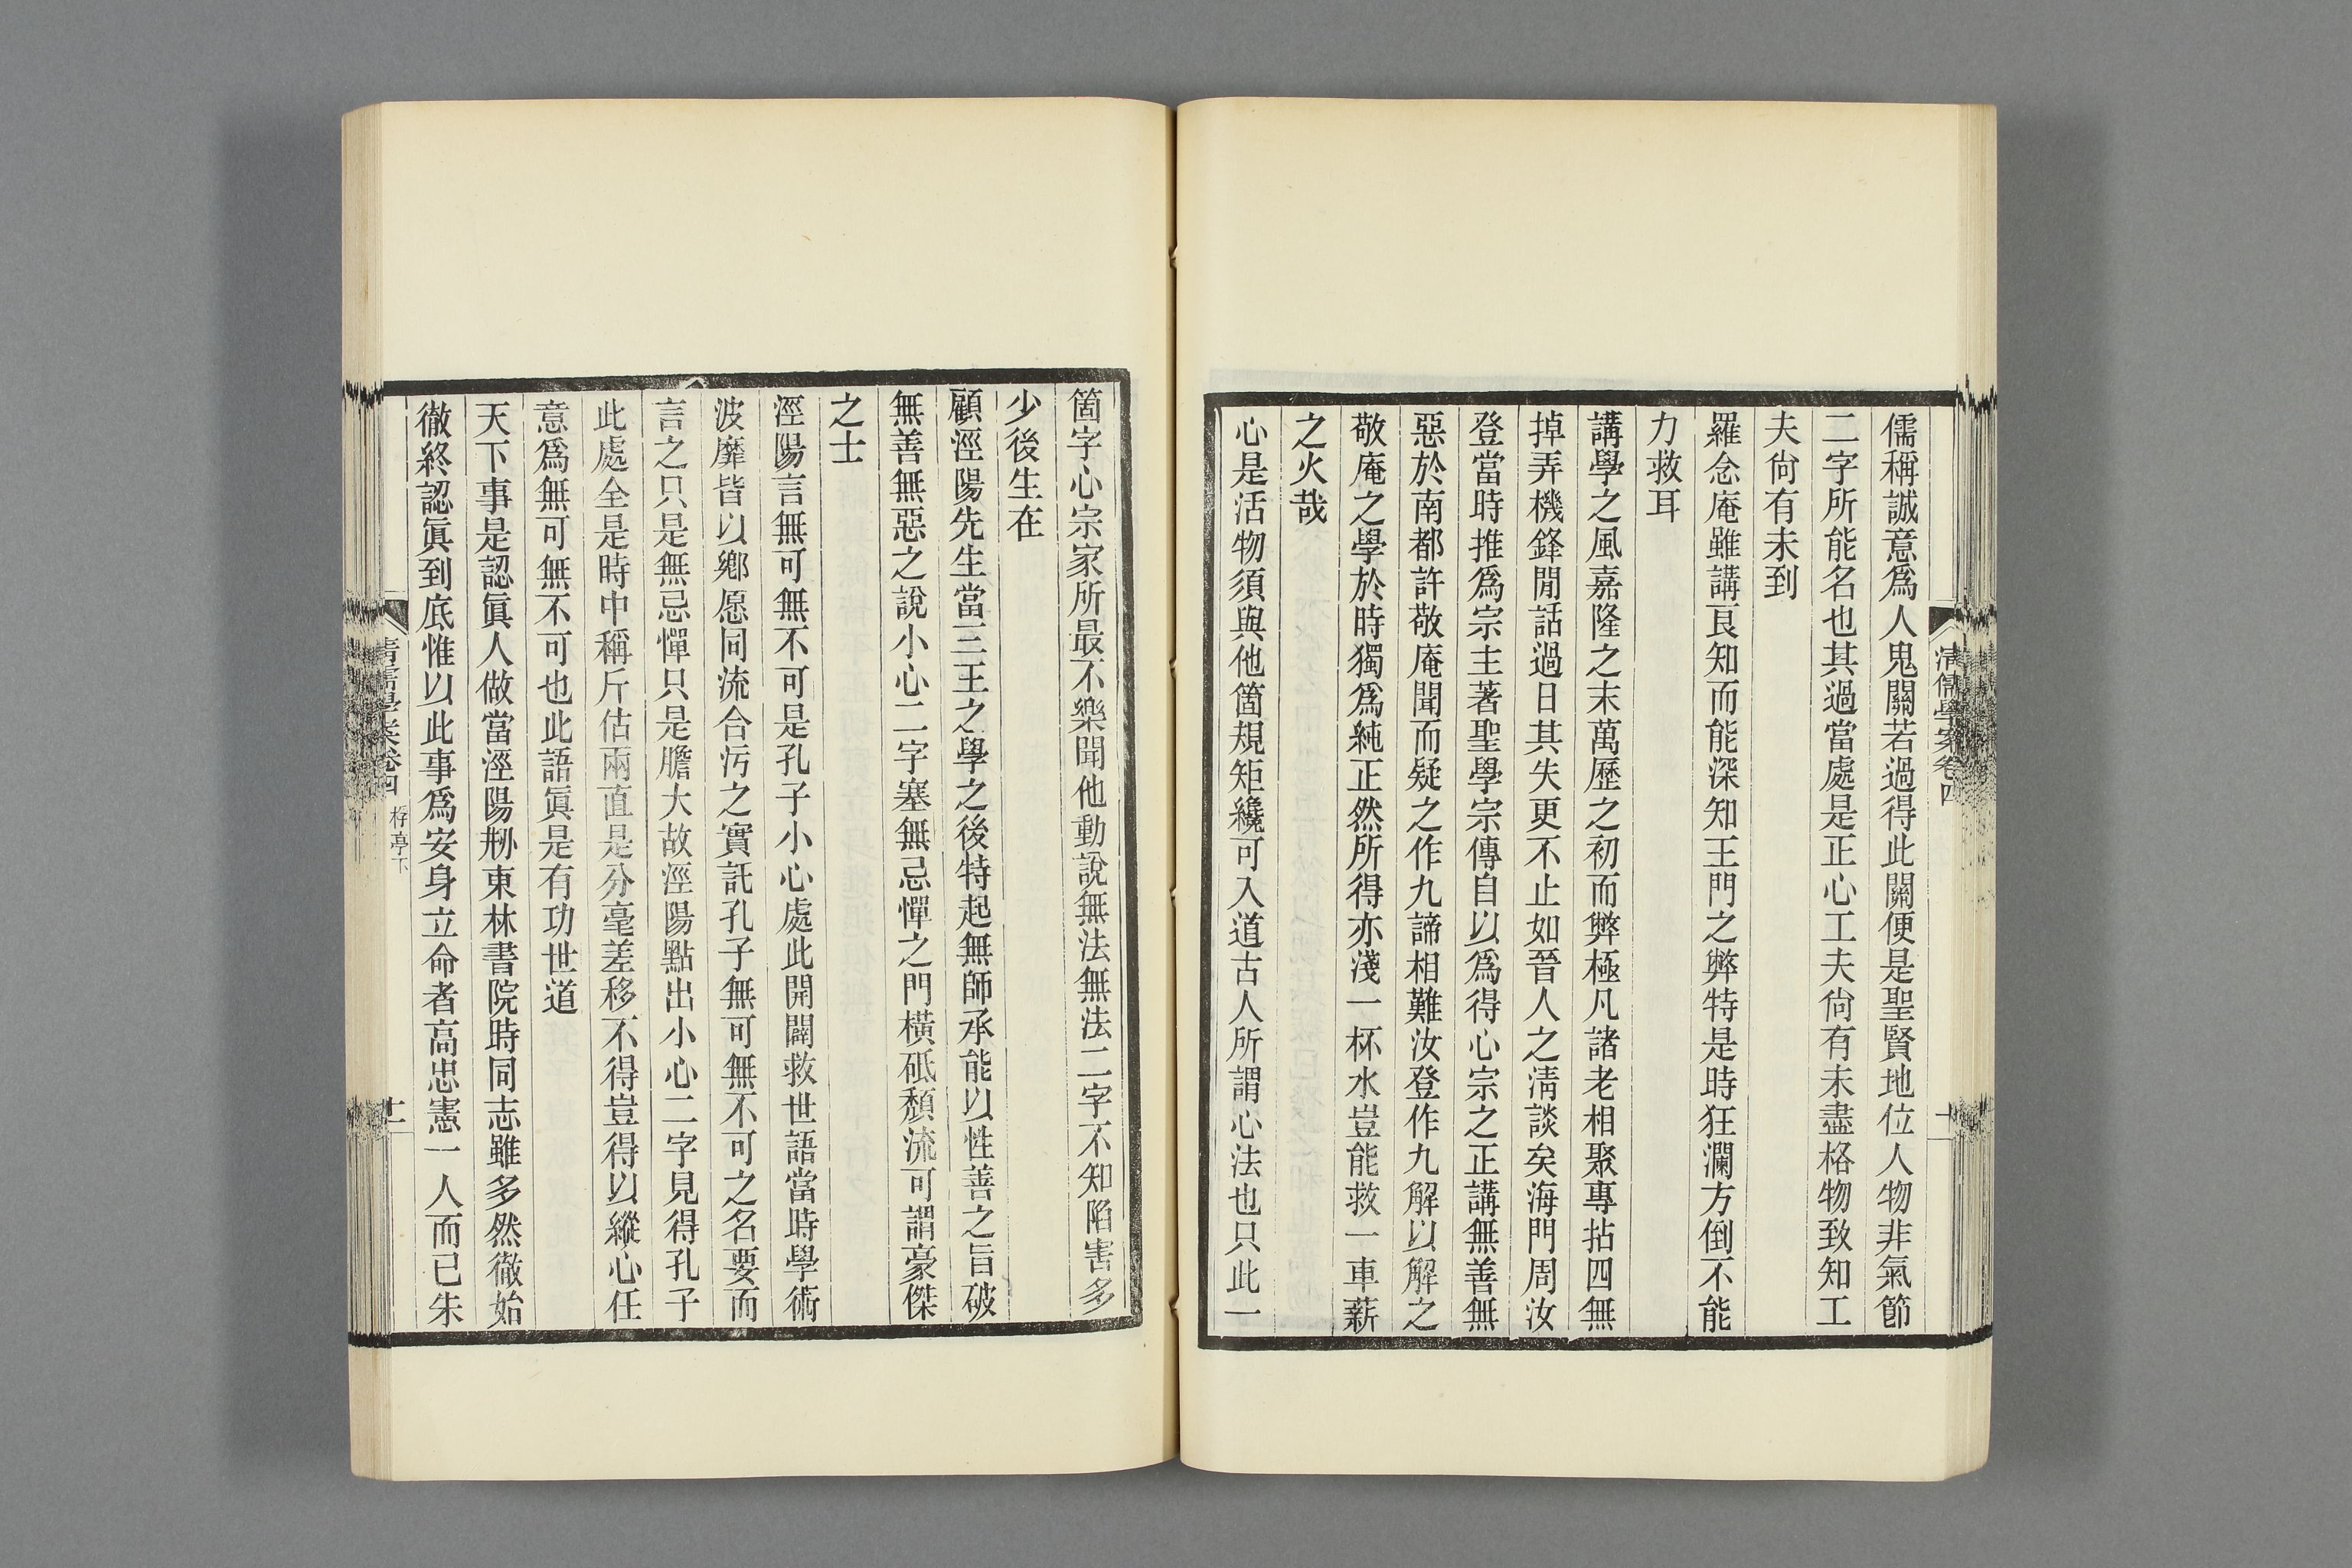 儒稱誠意爲人鬼關若過得此關便是聖賢地位人物非氣節
二字所能名也其過當處是正心工夫尙有未盡格物致知工
夫尙有未到
羅念庵雖講良知而能深知王門之弊特是時狂瀾方倒不能
力救耳
講學之風嘉隆之末萬歷之初而弊極凡諸老相聚專拈四無
掉弄機鋒閒話過日其失更不止如晉人之淸談矣海門周汝
登當時推爲宗主著聖學宗傳自以爲得心宗之正講無善無
惡於南都許敬庵聞而疑之作九諦相難汝登作九解以解之
敬庵之學於時獨爲純正然所得亦淺一杯水豈能救一車薪
之火哉
心是活物須與他箇規矩纔可入道古人所謂心法也只此一
清儒學案卷四
十
箇字心宗家所最不樂聞他動說無法無法二字不知陷害多
少後生在
顧涇陽先生當三王之學之後特起無師承能以性善之旨破
無善無惡之說小心二字塞無忌憚之門橫砥頹流可謂豪傑
之士
涇陽言無可無不可是孔子小心處此開闢救世語當時學術
波靡皆以鄕愿同流合污之實託孔子無可無不可之名要而
言之只是無忌憚只是膽大故涇陽點出小心二字見得孔子
此處全是時中稱斤估兩直是分毫差移不得豈得以縱心任
意爲無可無不可也此語眞是有功世道
天下事是認眞人做當涇陽刱東林書院時同志雖多然徹始
徹終認眞到底惟以此事爲安身立命者高忠憲一人而已朱
清儒學案卷四
桴亭下
十一